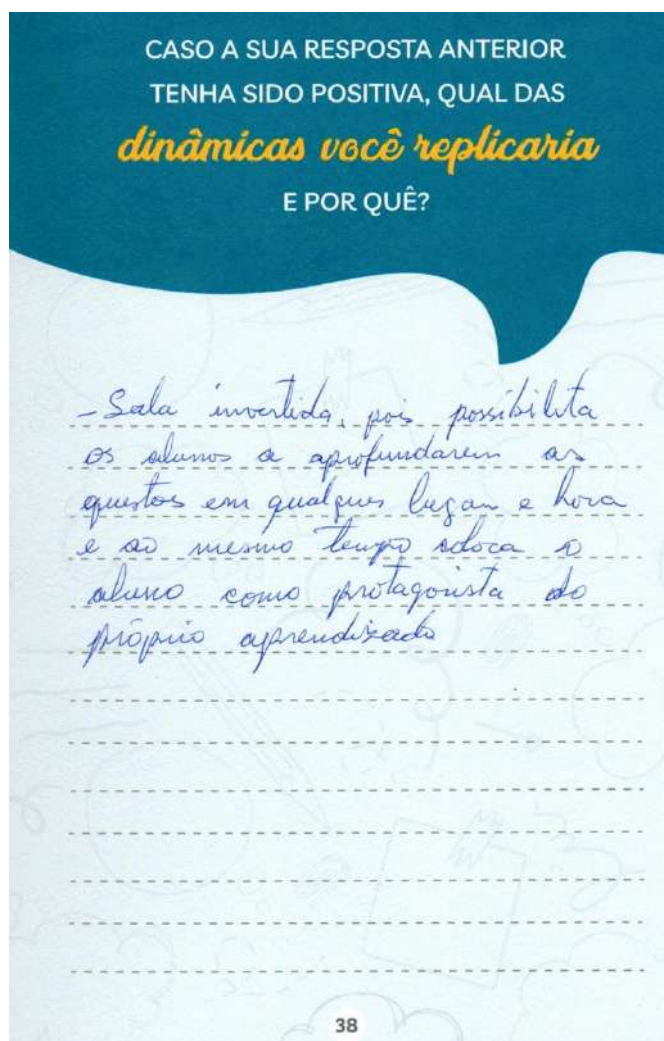 CASO A SUA RESPOSTA ANTERIOR
TENHA SIDO POSITIVA, QUAL DAS
dinâmicas você replicaria
E POR QUÊ?
- Sala invertida, pois possibilita
os alunos a aprofundarem as
questos em qualquer lugar e hora
e ao mesmo tempo coloca o
aluno como protagonista do
próprio aprendizado
38